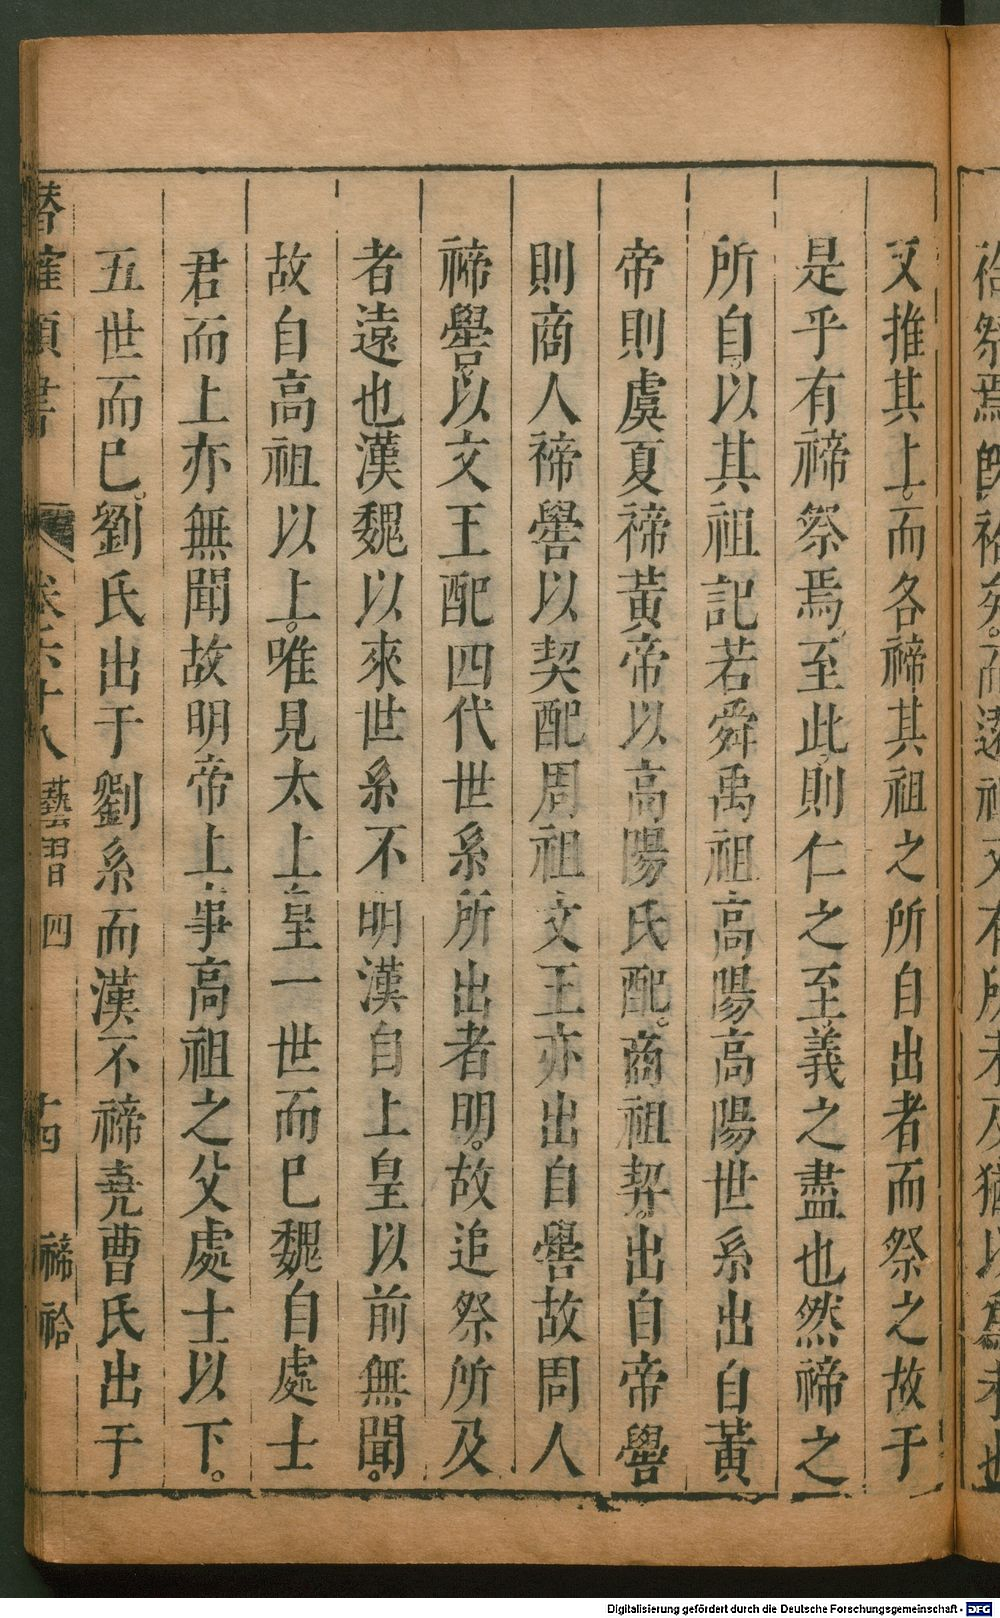 又推其上。而各禘其祖之所自出者而祭之故于
是乎有禘祭焉。至此。則仁之至義之盡也然禘之
所自。以其祖記若舜禹祖高陽高陽世系出自黃
帝則虞夏禘黃帝以高陽氏配。商祖契。出自帝嚳
則商人禘嚳以契配周祖文王亦出自嚳故周人
禘嚳。以文王配四代世系所出者明。故追祭所及
者遠也漢魏以來世系不明漢自上皇以前無聞。
故自高祖以上。唯見太上皇一世而已魏自處士
君而上亦無聞故明帝上事高祖之父處士以下。
五世而已。劉氏出于劉系而漢不禘堯曹氏出于
潛確類書 卷六十八 藝習四 十四 禘祫
Digitalisierung gefördert durch die Deutsche Forschungsgemeinschaft - DFG